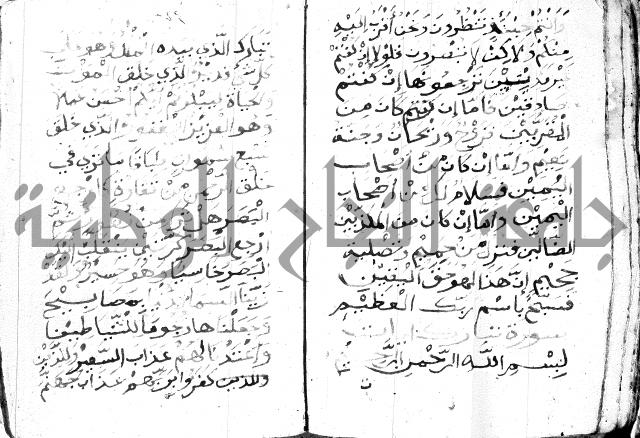 وانتم حينئذ تنظرون ونحن أقرب اليه
منكم ولاكن لا تبصرون فلولا إن كنتم
غير مدينين ترجعونها إن كنتم
صادقين فاما إن كنتم كان من
المقربين فروح وريحان وجنة
نعيم واما ان كان من أصحاب
اليمين فسلام لك من أصحاب
اليمين واما إن كان من المكذبين
الضالين فنزل من حميم وتصلية
جحيم إن هذا لهو حق اليقين
فسبح باسم ربك العظيم
سورة تبارك
بسم الله الرحمن الرحيم
تبارك الذي بيده الملك وهو على
كل شيء قدير الذي خلق الموت
والحياة ليبلوكم أيكم أحسن عملا
وهو العزيز الغفور الذي خلق
سبع سموات طباقا ما ترى في
خلق الرحمن من تفاوت فارجع
البصر هل ترى من فطور ثم
ارجع البصر كرتين ينقلب إليك
البصر خاسيا وهو حسير ولقد
زينا السماء الدنيا بمصابيح
وجعلناها رجوما للشياطين
وأعتدنا لهم عذاب السعير وللذين
وللذين كفروا بربهم عذاب جهنم
جامعة النجاح الوطنية